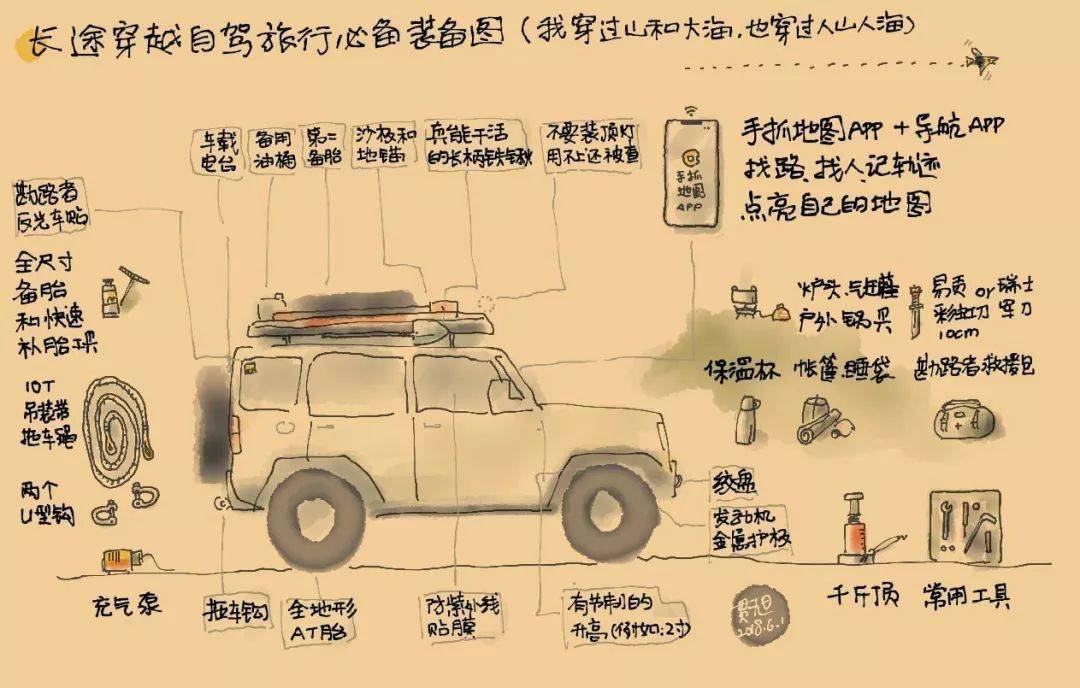 长途穿越自驾旅行必备装备图(我穿过山和大海,也穿过人山人海)
车载
电台
备用
油桶
第二
备胎
沙板和
地锚
真能干活
的长柄铁锹
不要装顶灯
用不上还被查
手抓
地图
APP
手抓地图APP+导航APP
找路、找人、记轨迹
点亮自己的地图
勘路者
反光车贴
全尺寸
备胎
和快速
补胎工具
10T
吊装带
拖车绳
两个
U型钩
充气泵
炉头、气罐
户外锅具
or瑞士
军刀
10cm
保温杯
帐篷、睡袋
勘路者救援包
绞盘
发动机
金属护板
千斤顶
常用工具
拖车钩
全地形
AT胎
防紫外线
贴膜
有节制的
升高(例如:2寸)
2018.6.1